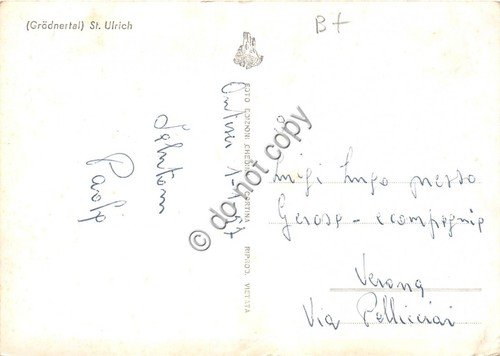 (Grödnertal) St. Ulrich
B+
FOTO EDIZIONI GHEDINA CORTINA - RIPROD. VIETATA
Saluti
Paolo
Luigi Lugo presso
Gerosa - e compagnia
Verona
Via Pellicciai
© do not copy